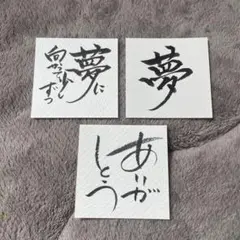 夢に
向かって少し
ずつ
夢
ありが
とう